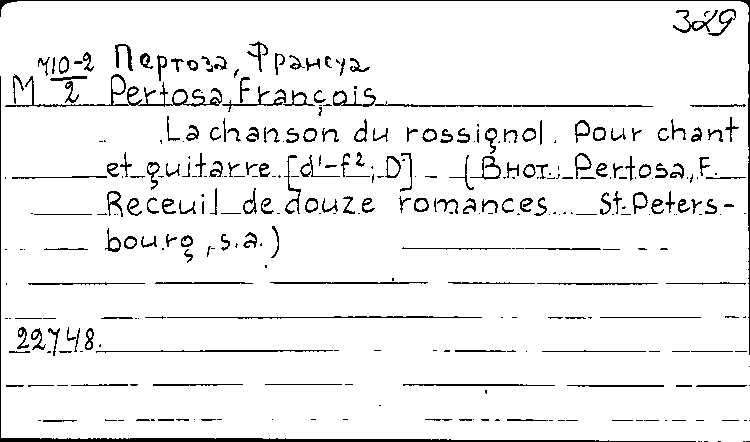 329
М 410-2/2 Пертоза, Франсуа
Pertosa, François
La chanson du rossignol. Pour chant
et guitarre [d¹-f²; D] (В нот.: Pertosa, F.
Receuil de douze romances St.-Peters-
bourg, s.a.)
22748.